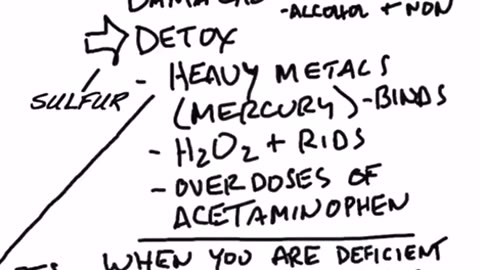 -ALCOHOL + NON
DETOX
SULFUR
- HEAVY METALS
(MERCURY)-BINDS
- H2O2 + RIDS
- OVERDOSES OF
ACETAMINOPHEN
WHEN YOU ARE DEFICIENT